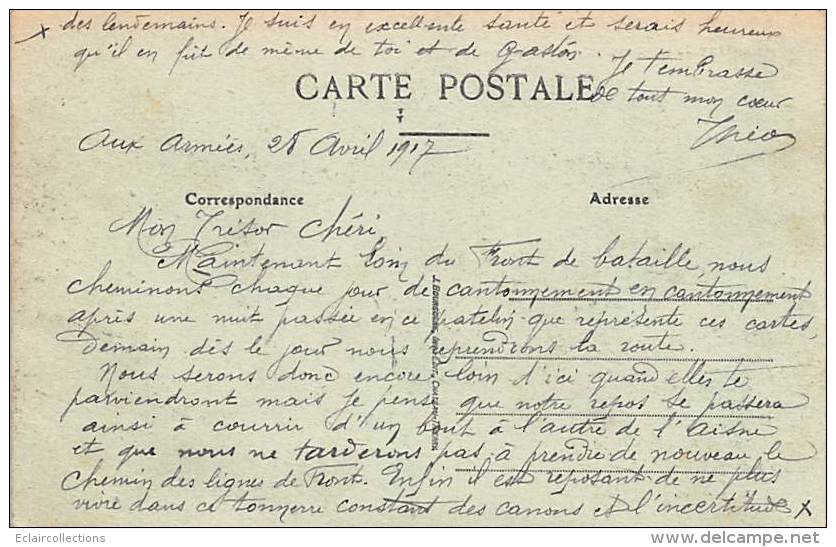 x des lendemains. Je suis en excellente santé et serais heureux
qu'il en fût de même de toi et de Gaston. Je t'embrasse
de tout mon cœur
Théo
CARTE POSTALE
Aux Armées, 28 Avril 1917
Correspondance
Adresse
Mon Trésor Chéri,
Maintenant loin du Front de bataille, nous
cheminons chaque jour de cantonnement en cantonnement
après une nuit passée en ce patelin que représente ces cartes,
demain dès le jour nous reprendrons la route.
Nous serons donc encore loin d'ici quand elles te
parviendront mais je pense que notre repos se passera
ainsi à courrir d'un bout à l'autre de l'Aisne
et que nous ne tarderons pas à prendre de nouveau le
chemin des lignes de Front. Enfin il est reposant de ne plus
vivre dans ce tonnerre constant des canons et l'incertitude x
Eclaircollections